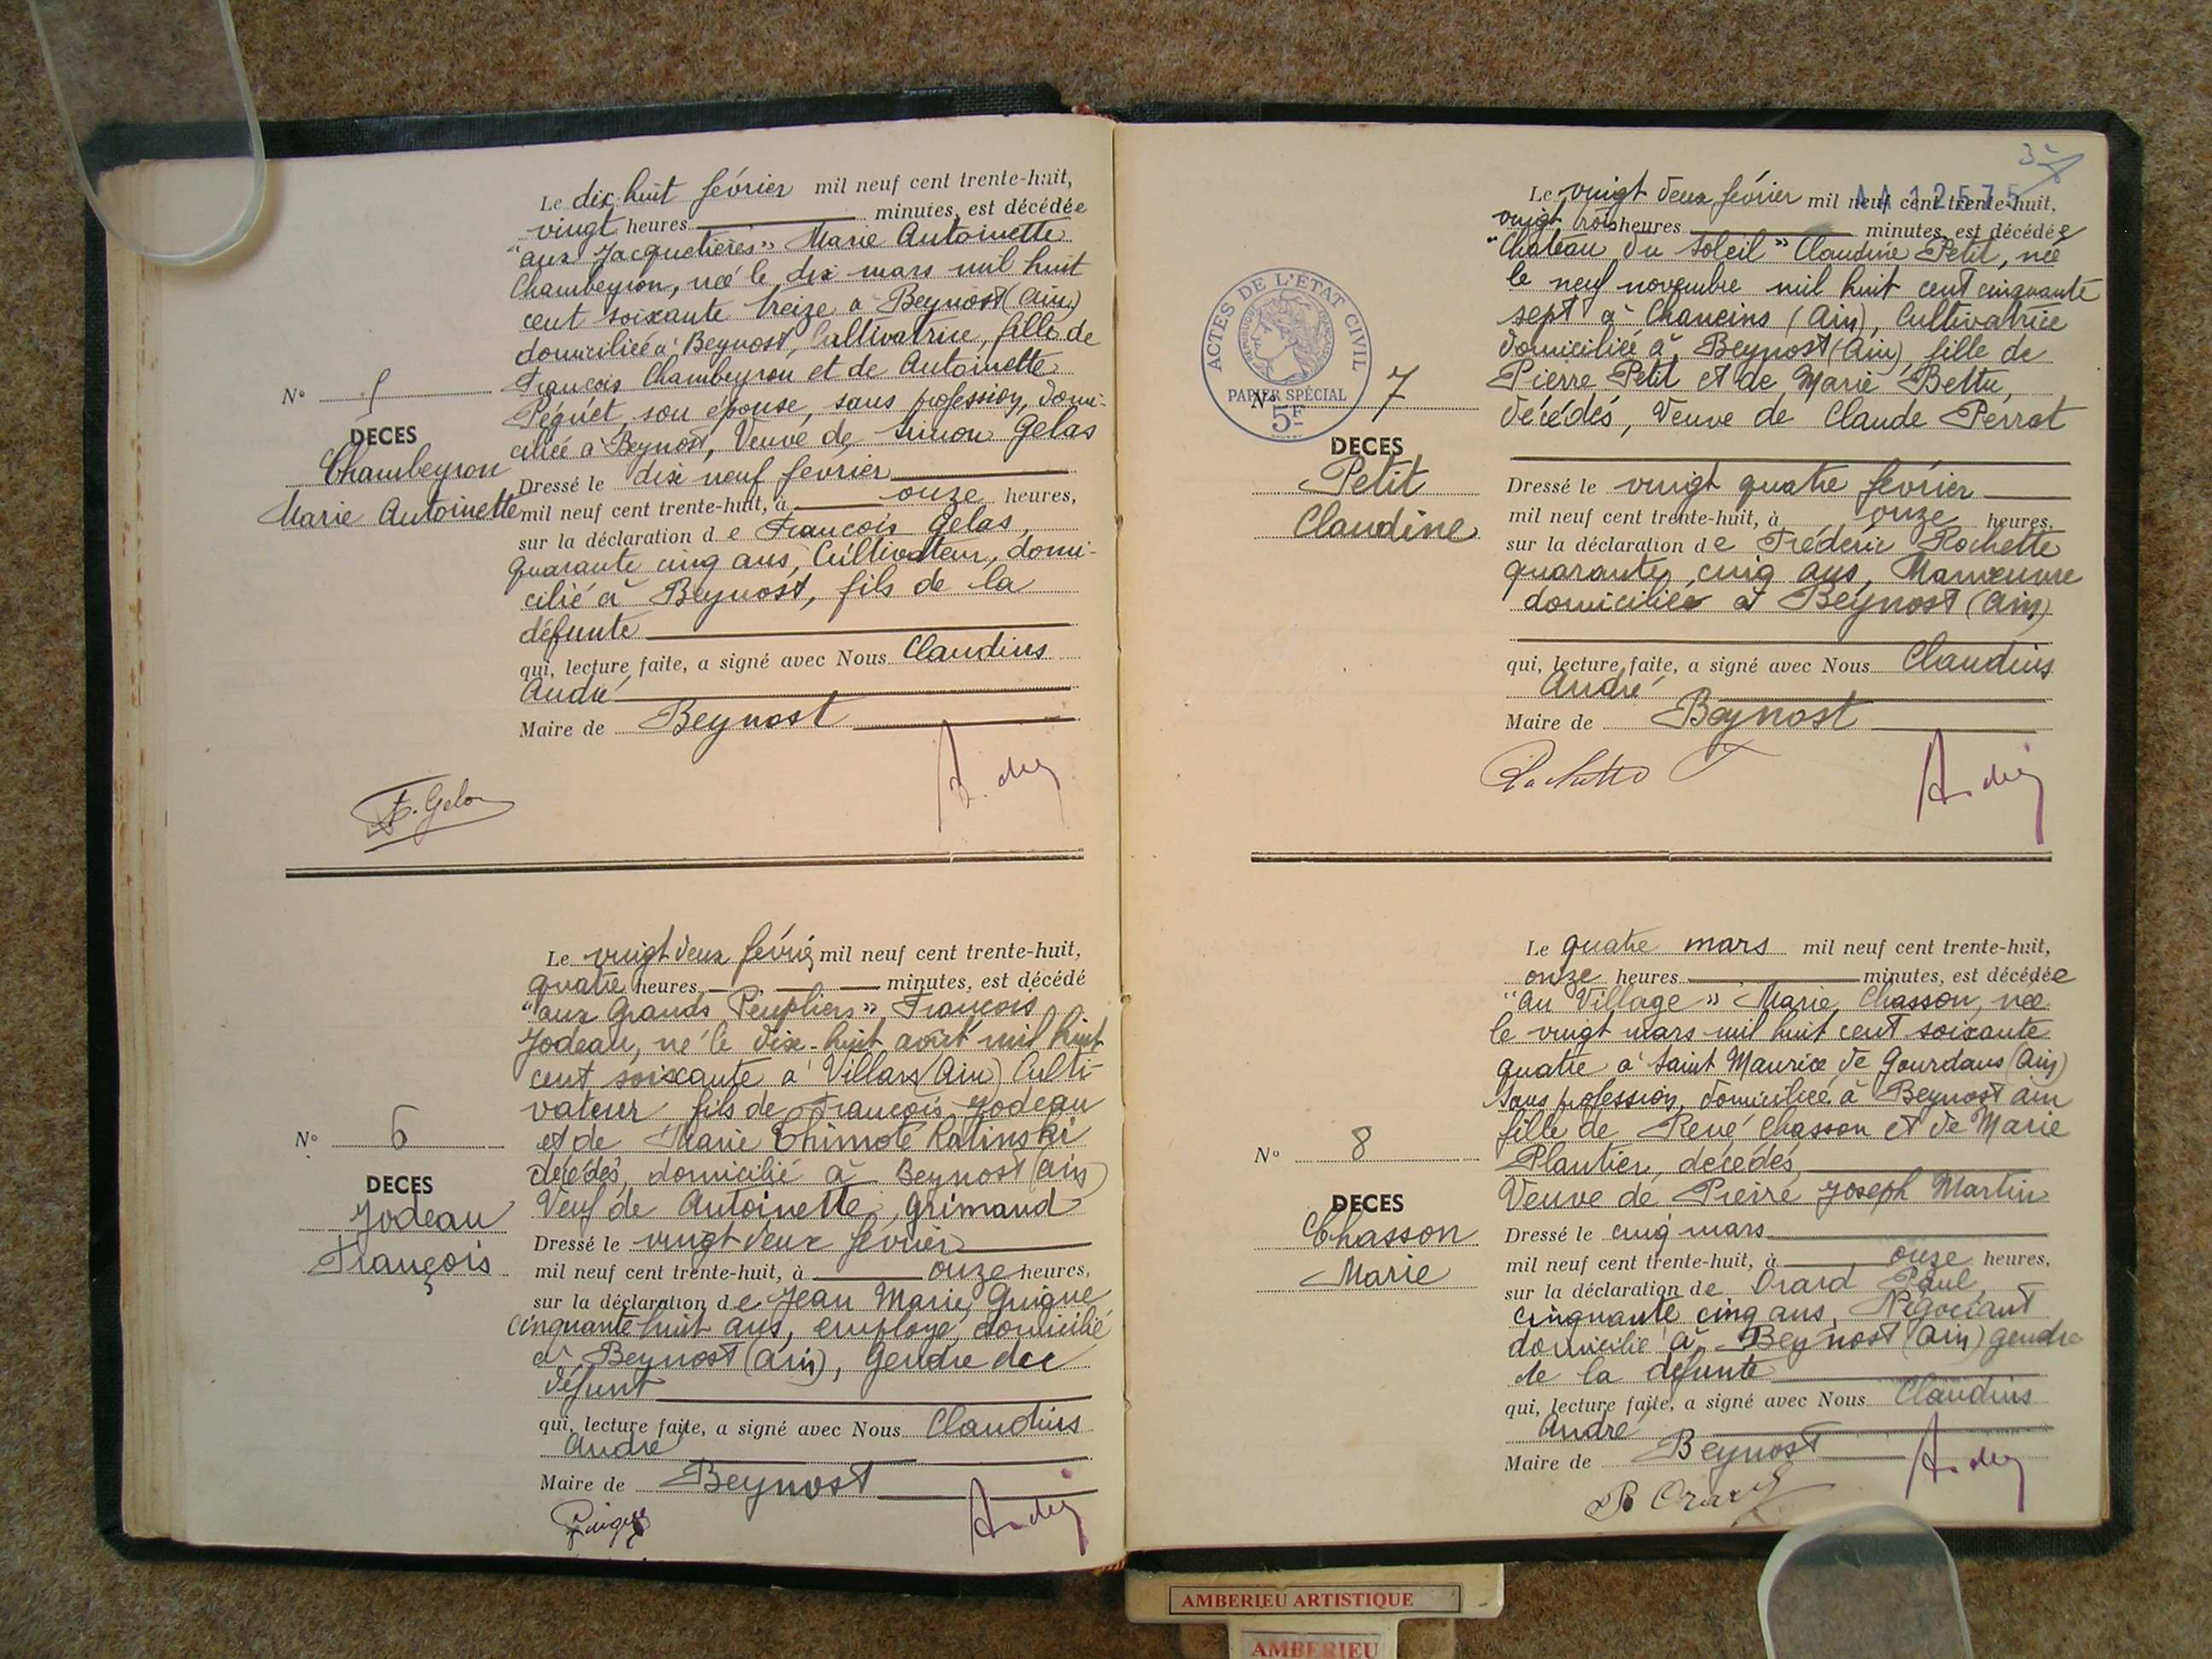 Le dix huit février mil neuf cent trente-huit,
vingt heures minutes, est décédée
"aux Jacquetières" Marie Antoinette
Chambeyron, née le dix mars mil huit
cent soixante treize à Beynost (Ain)
domiciliée à Beynost, Cultivatrice, fille de
François Chambeyron et de Antoinette
Péquet, son épouse, sans profession, domi-
ciliée à Beynost, Veuve de Simon Gelas
N° 5
DECES
Chambeyron
Marie Antoinette
Dressé le dix neuf février
mil neuf cent trente-huit, à onze heures,
sur la déclaration de François Gelas,
quarante cinq ans, Cultivateur, domi-
cilié à Beynost, fils de la
défunte
qui, lecture faite, a signé avec Nous Claudius
André
Maire de Beynost
F. Gelas
André
Le vingt deux février mil neuf cent trente-huit,
quatre heures minutes, est décédé
"aux Grands Peupliers" François
Jodeau, né le dix-huit août mil huit
cent soixante à Villars (Ain) Culti-
vateur fils de François Jodeau
et de Marie Thimoté Ratinski
décédés, domicilié à Beynost (Ain)
Veuf de Antoinette Grimand
N° 6
DECES
Jodeau
François
Dressé le vingt deux février
mil neuf cent trente-huit, à onze heures,
sur la déclaration de Jean Marie Guigue
cinquante huit ans, employé, domicilié
à Beynost (Ain), Gendre du
défunt
qui, lecture faite, a signé avec Nous Claudius
André
Maire de Beynost
Guigue
André
AA 12575
Le vingt deux février mil neuf cent trente-huit,
vingt trois heures minutes, est décédée
"Château du Soleil" Claudine Petit, née
le neuf novembre mil huit cent cinquante
sept à Chaneins (Ain), Cultivatrice
domiciliée à Beynost (Ain) fille de
Pierre Petit et de Marie Bettu,
décédés, Veuve de Claude Perrat
ACTES DE L'ÉTAT CIVIL
RÉPUBLIQUE FRANÇAISE
PAPIER SPÉCIAL
5F
N° 7
DECES
Petit
Claudine
Dressé le vingt quatre février
mil neuf cent trente-huit, à onze heures,
sur la déclaration de Frédéric Rochette
quarante cinq ans, Manœuvre
domicilié à Beynost (Ain)
qui, lecture faite, a signé avec Nous Claudius
André
Maire de Beynost
Rochette
André
Le quatre mars mil neuf cent trente-huit,
onze heures minutes, est décédée
"au Village" Marie Chasson, née
le vingt mars mil huit cent soixante
quatre à Saint Maurice de Gourdans (Ain)
sans profession, domiciliée à Beynost Ain
fille de René Chasson et de Marie
Plantier, décédés,
Veuve de Pierre Joseph Martin
N° 8
DECES
Chasson
Marie
Dressé le cinq mars
mil neuf cent trente-huit, à onze heures,
sur la déclaration de Orard Paul
cinquante cinq ans, Négociant
domicilié à Beynost (Ain) gendre
de la défunte
qui, lecture faite, a signé avec Nous Claudius
André
Maire de Beynost
P Orard
André
AMBERIEU ARTISTIQUE
AMBERIEU